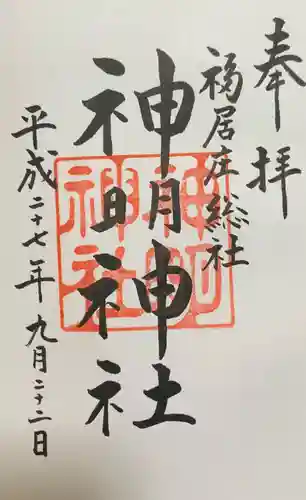 奉拝
福居庄総社
神明神社
平成二十七年九月二十二日
神明神社